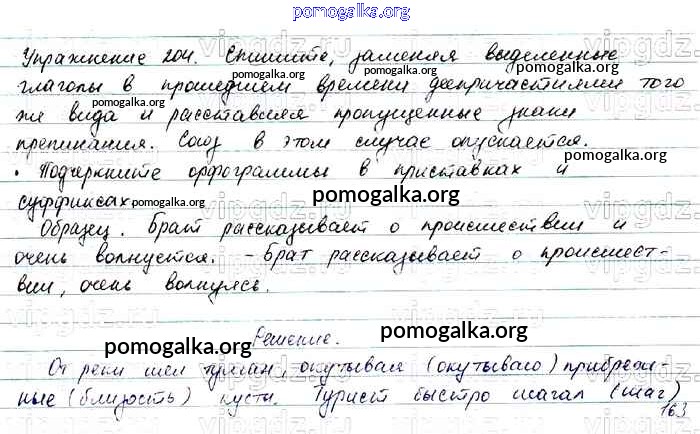 pomogalka.org
Упражнение 204. Спишите, заменяя выделенные
pomogalka.org
глаголы в прошедшем времени деепричастиями того
pomogalka.org
же вида и расставляя пропущенные знаки
препинания. Союз в этом случае опускается.
pomogalka.org
• Подчеркните орфограммы в приставках и
суффиксах
pomogalka.org
pomogalka.org
Образец. Брат рассказывает о происшествии и
очень волнуется. - Брат рассказывает о происшест-
pomogalka.org
вии, очень волнуясь.
Решение.
pomogalka.org
pomogalka.org
От реки шел туман, окутывая (окутываю) прибреж-
ные (близость) кусты. Турист быстро шагал (шаг)
163